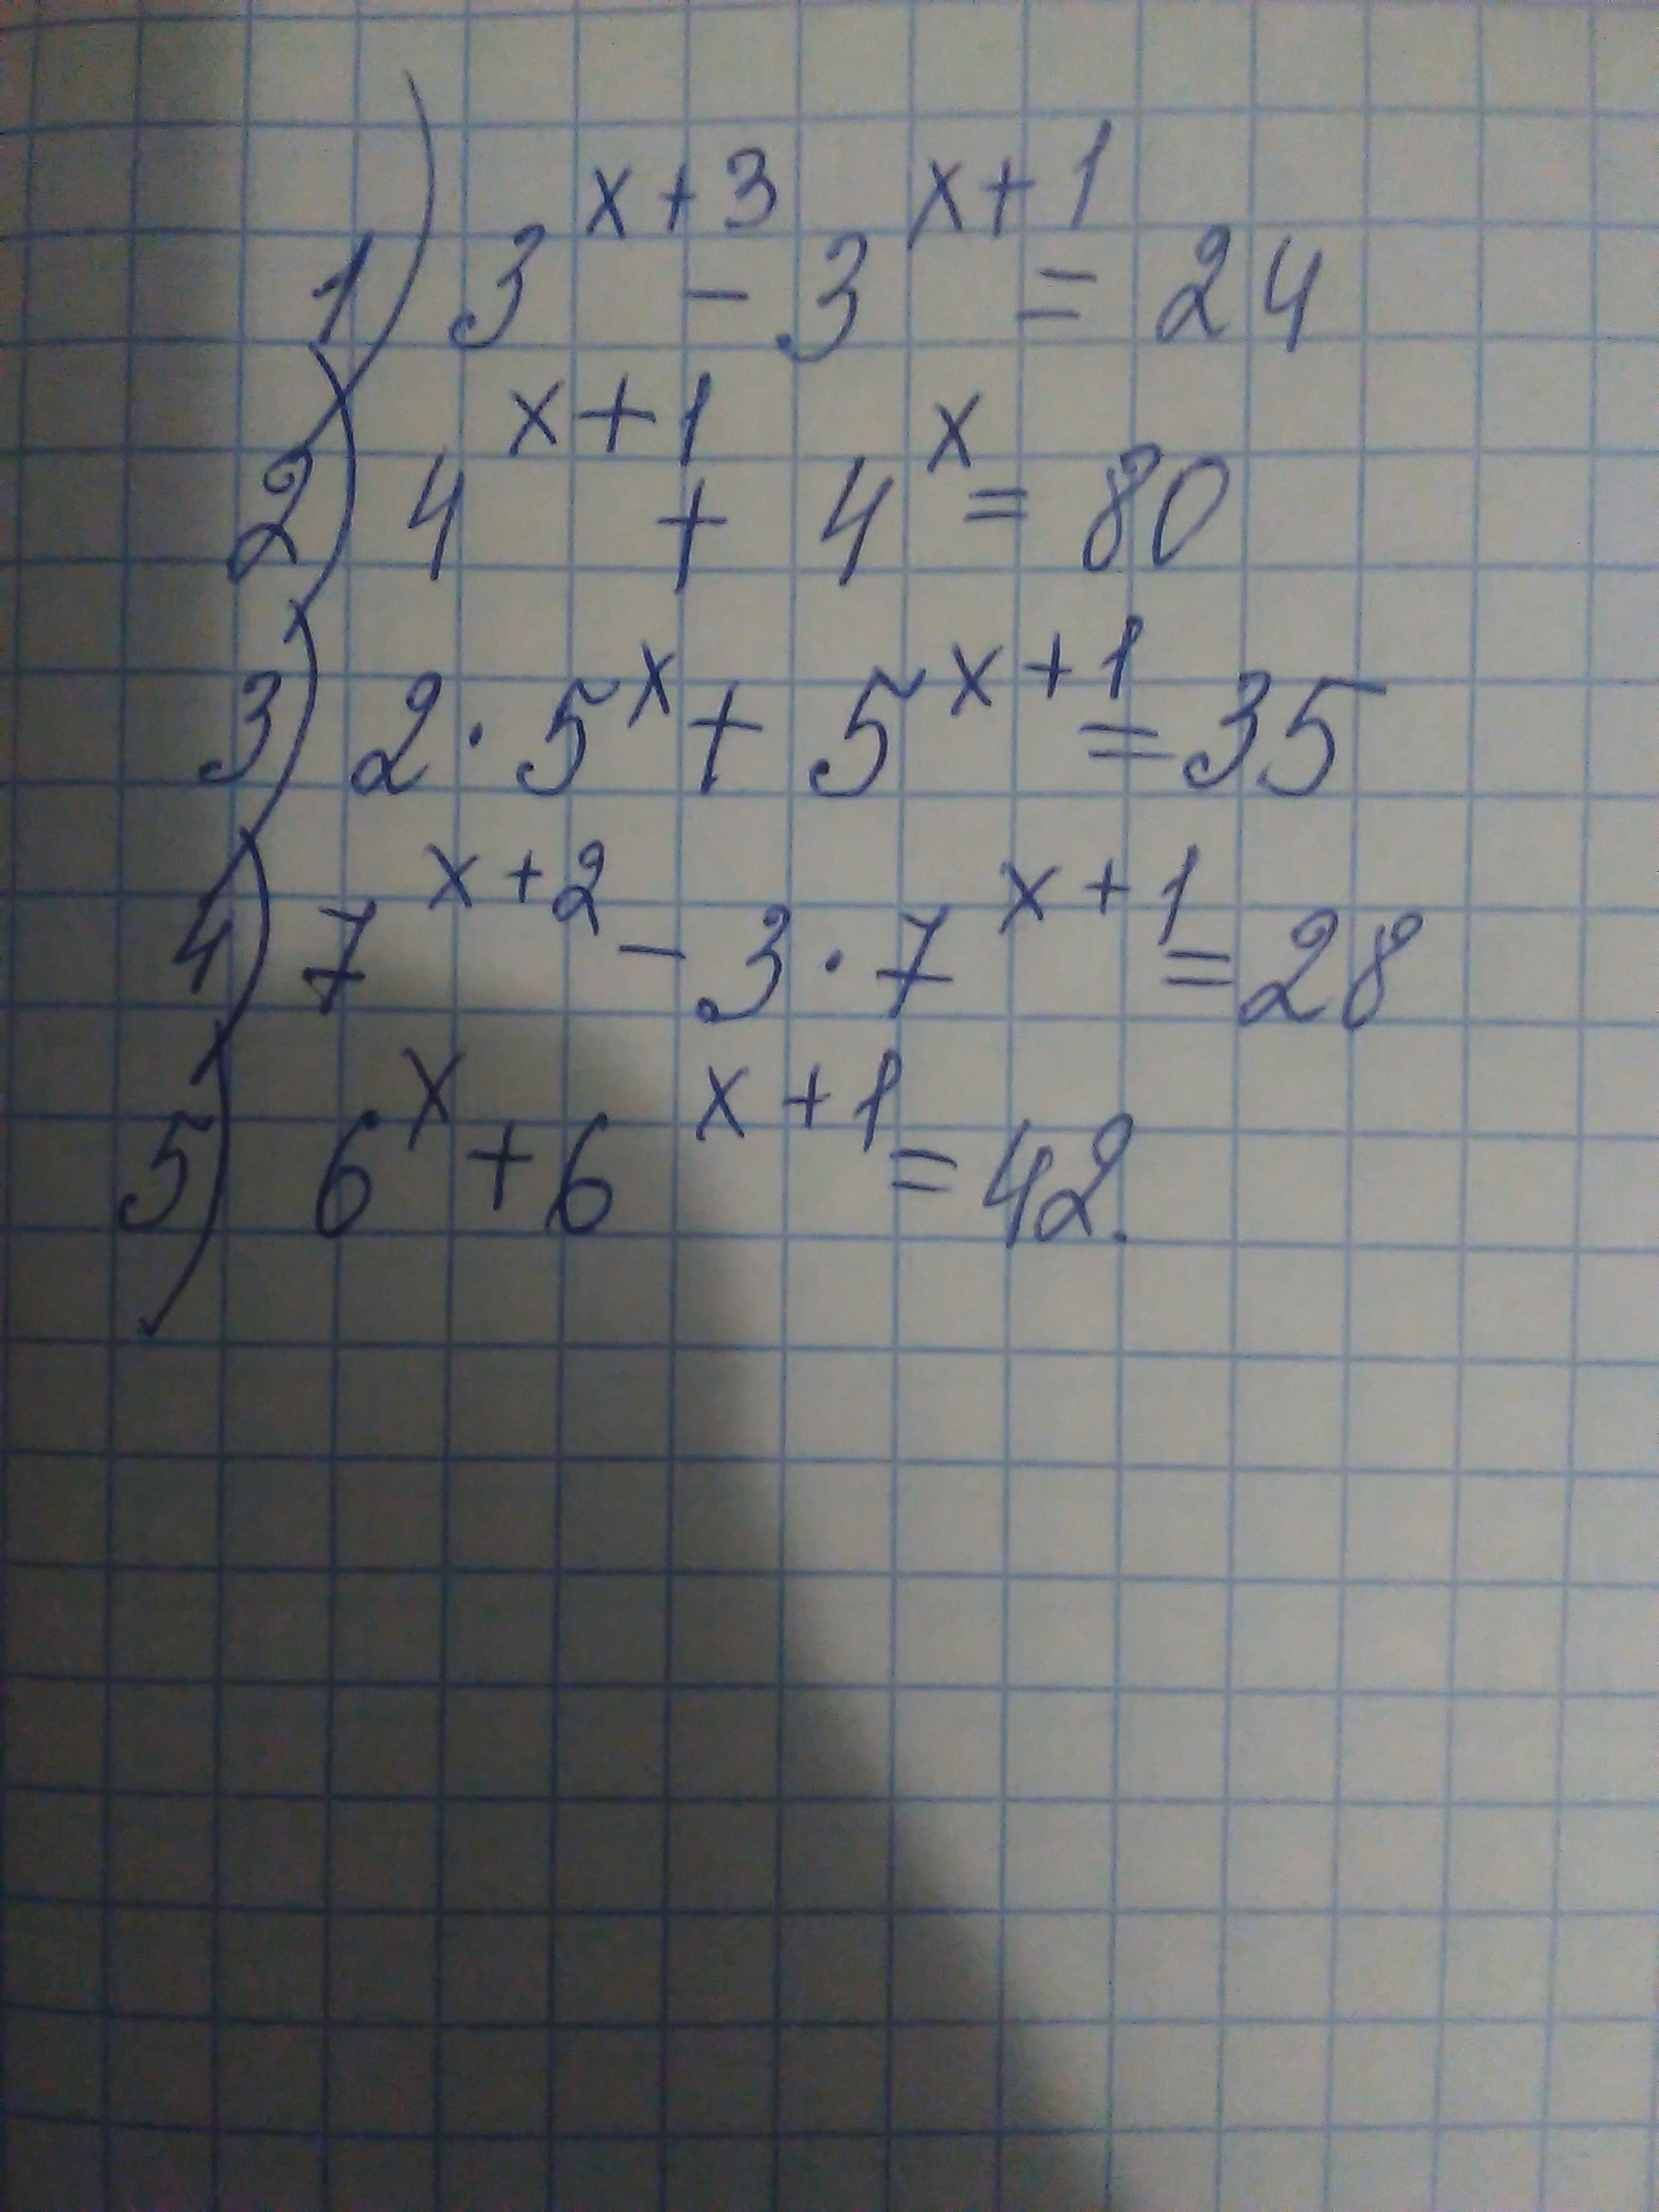 1) 3^{x+3} - 3^{x+1} = 24
2) 4^{x+1} + 4^{x} = 80
3) 2 · 5^{x} + 5^{x+1} = 35
4) 7^{x+2} - 3 · 7^{x+1} = 28
5) 6^{x} + 6^{x+1} = 42.